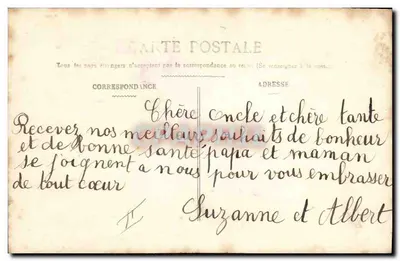 CARTE POSTALE
Tous les pays étrangers n'acceptent pas la correspondance au recto
CORRESPONDANCE
ADRESSE
Chère Oncle et chère tante
Recevez nos meilleurs souhaits de bonheur
et de bonne santé, papa et maman
se joignent a nous pour vous embrasser
de tout cœur
Suzanne et Albert
II